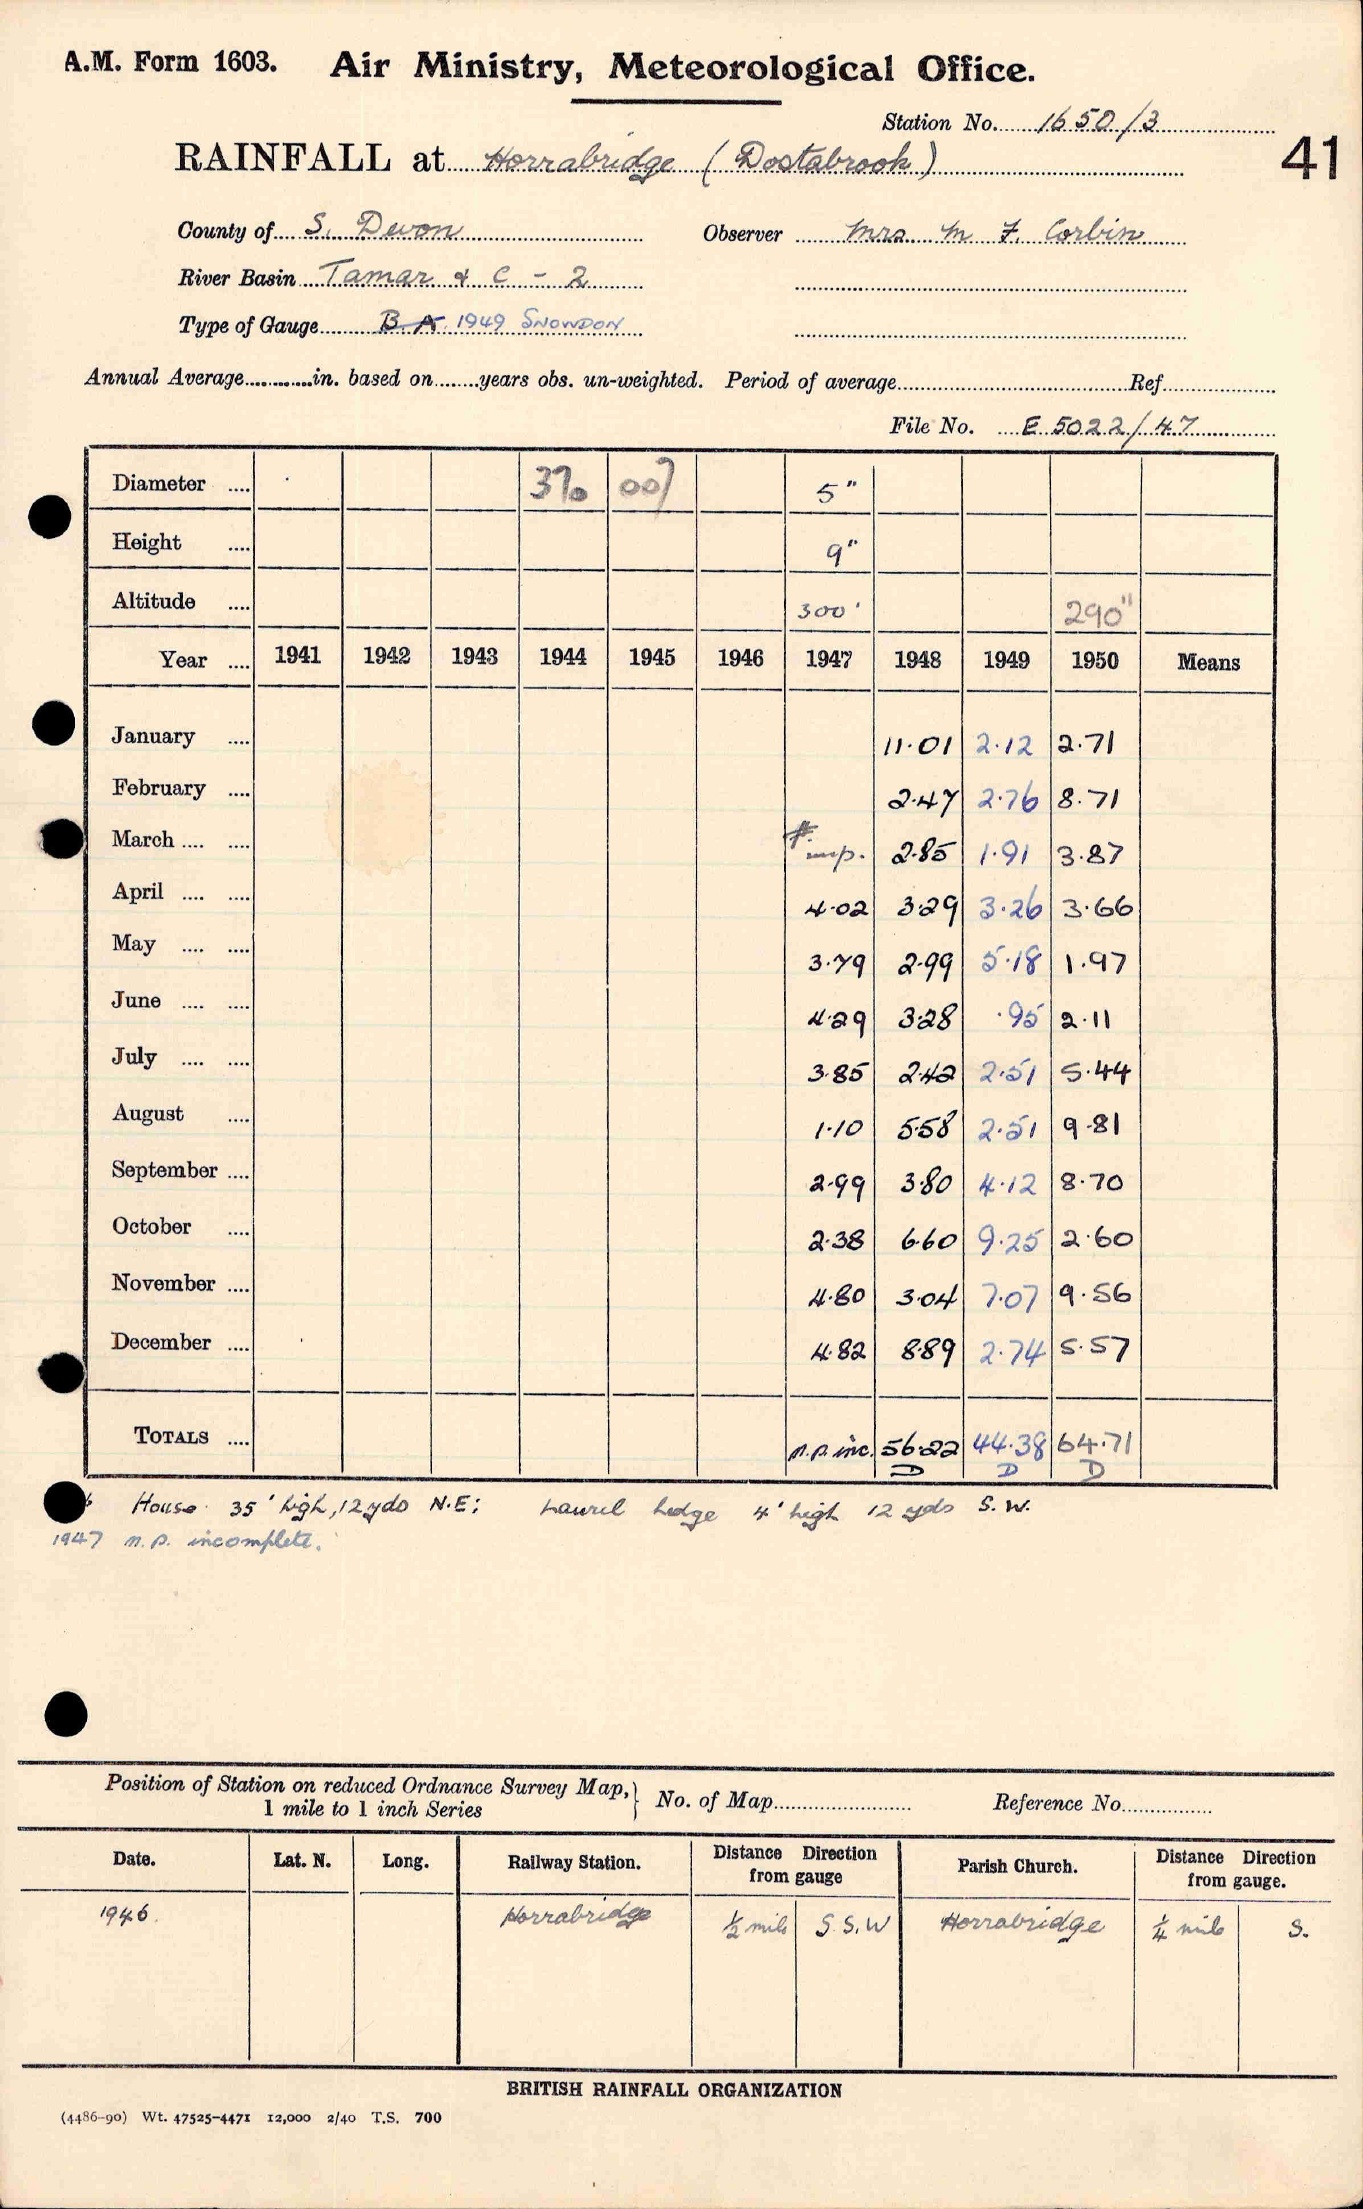 A.M. Form 1603. Air Ministry, Meteorological Office.
Station No. 1650/3
41
RAINFALL at Horrabridge (Dostabrook)
County of S. Devon Observer Mrs M F. Corbin
River Basin Tamar & C - 2
Type of Gauge B A 1949 SNOWDON
Annual Average............in. based on........years obs. un-weighted. Period of average........Ref........
File No. E 5022/47
Diameter .... 370 007 5"
Height .... 9"
Altitude .... 300' 290"
Year .... 1941 1942 1943 1944 1945 1946 1947 1948 1949 1950 Means
January .... 11.01 2.12 2.71
February .... 2.47 2.76 8.71
March .... .... # imp. 2.85 1.91 3.87
April .... .... 4.02 3.29 3.26 3.66
May .... .... 3.79 2.99 5.18 1.97
June .... .... 4.29 3.28 .95 2.11
July .... .... 3.85 2.42 2.51 5.44
August .... 1.10 5.58 2.51 9.81
September .... 2.99 3.80 4.12 8.70
October .... 2.38 6.60 9.25 2.60
November .... 4.80 3.04 7.07 9.56
December .... 4.82 8.89 2.74 5.57
TOTALS .... n.p. inc. 56.22 44.38 64.71
D D D
House 35' high, 12 yds N.E; Laurel hedge 4' high 12 yds S.W.
1947 n.p. incomplete.
Position of Station on reduced Ordnance Survey Map, } No. of Map........ Reference No........
1 mile to 1 inch Series
Date. Lat. N. Long. Railway Station. Distance Direction from gauge Parish Church. Distance Direction from gauge.
1946. Horrabridge ½ mile S.S.W Horrabridge ¼ mile S.
BRITISH RAINFALL ORGANIZATION
(4486-90) Wt. 47525-4471 12,000 2/40 T.S. 700